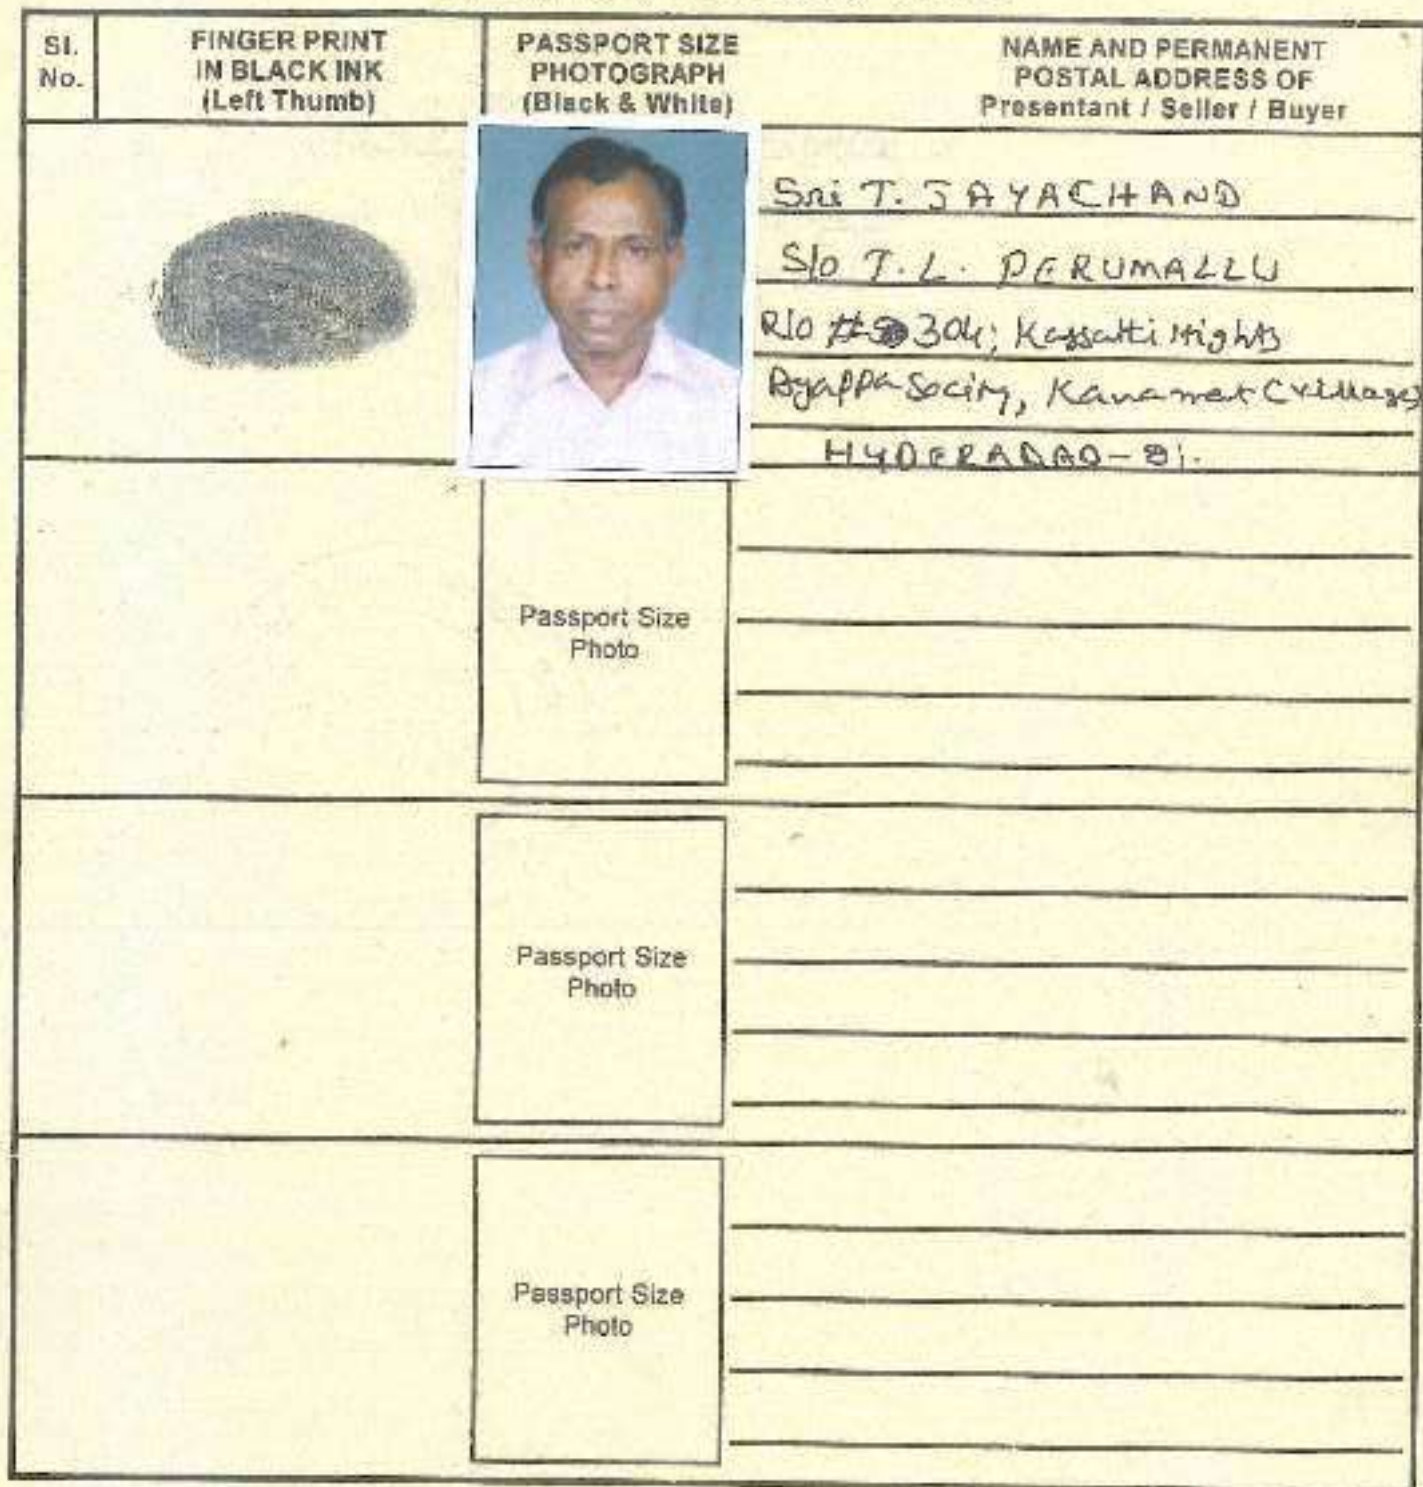 Sl.
No.
FINGER PRINT
IN BLACK INK
(Left Thumb)
PASSPORT SIZE
PHOTOGRAPH
(Black & White)
NAME AND PERMANENT
POSTAL ADDRESS OF
Presentant / Seller / Buyer
Sri T. JAYACHAND
S/o T.L. PERUMALLU
R/o # 304; Kassatti Hights
Ayappa Society, Kanamet (Village)
HYDERABAD-81.
Passport Size
Photo
Passport Size
Photo
Passport Size
Photo